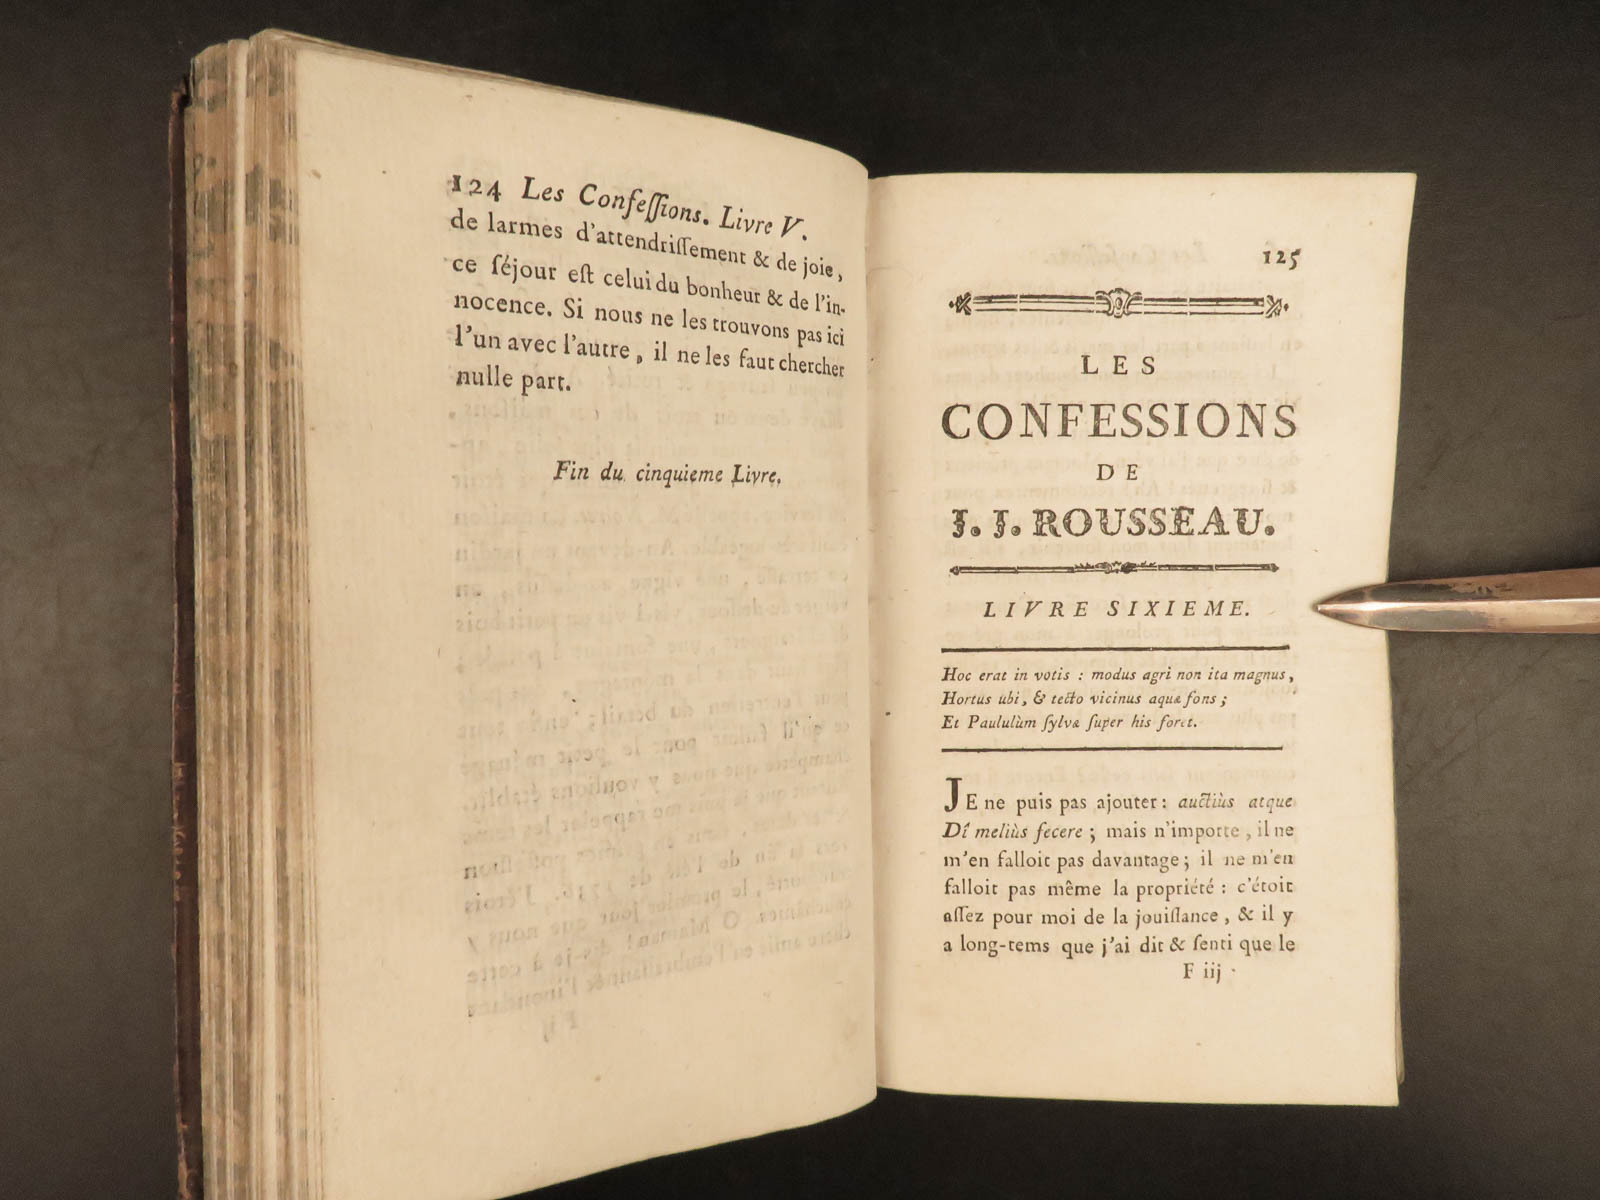 124 Les Confeſſions. Livre V.
de larmes d'attendriſſement & de joie,
ce ſéjour eſt celui du bonheur & de l'in-
nocence. Si nous ne les trouvons pas ici
l'un avec l'autre, il ne les faut chercher
nulle part.
Fin du cinquieme Livre.
125
LES
CONFESSIONS
DE
J. J. ROUSSEAU.
LIVRE SIXIEME.
Hoc erat in votis : modus agri non ita magnus,
Hortus ubi, & tecto vicinus aquæ fons ;
Et Paululùm ſylvæ ſuper his foret.
JE ne puis pas ajouter : auctiùs atque
Dî meliùs fecere ; mais n'importe, il ne
m'en falloit pas davantage ; il ne m'en
falloit pas même la propriété : c'étoit
aſſez pour moi de la jouiſſance, & il y
a long-tems que j'ai dit & ſenti que le
F iij